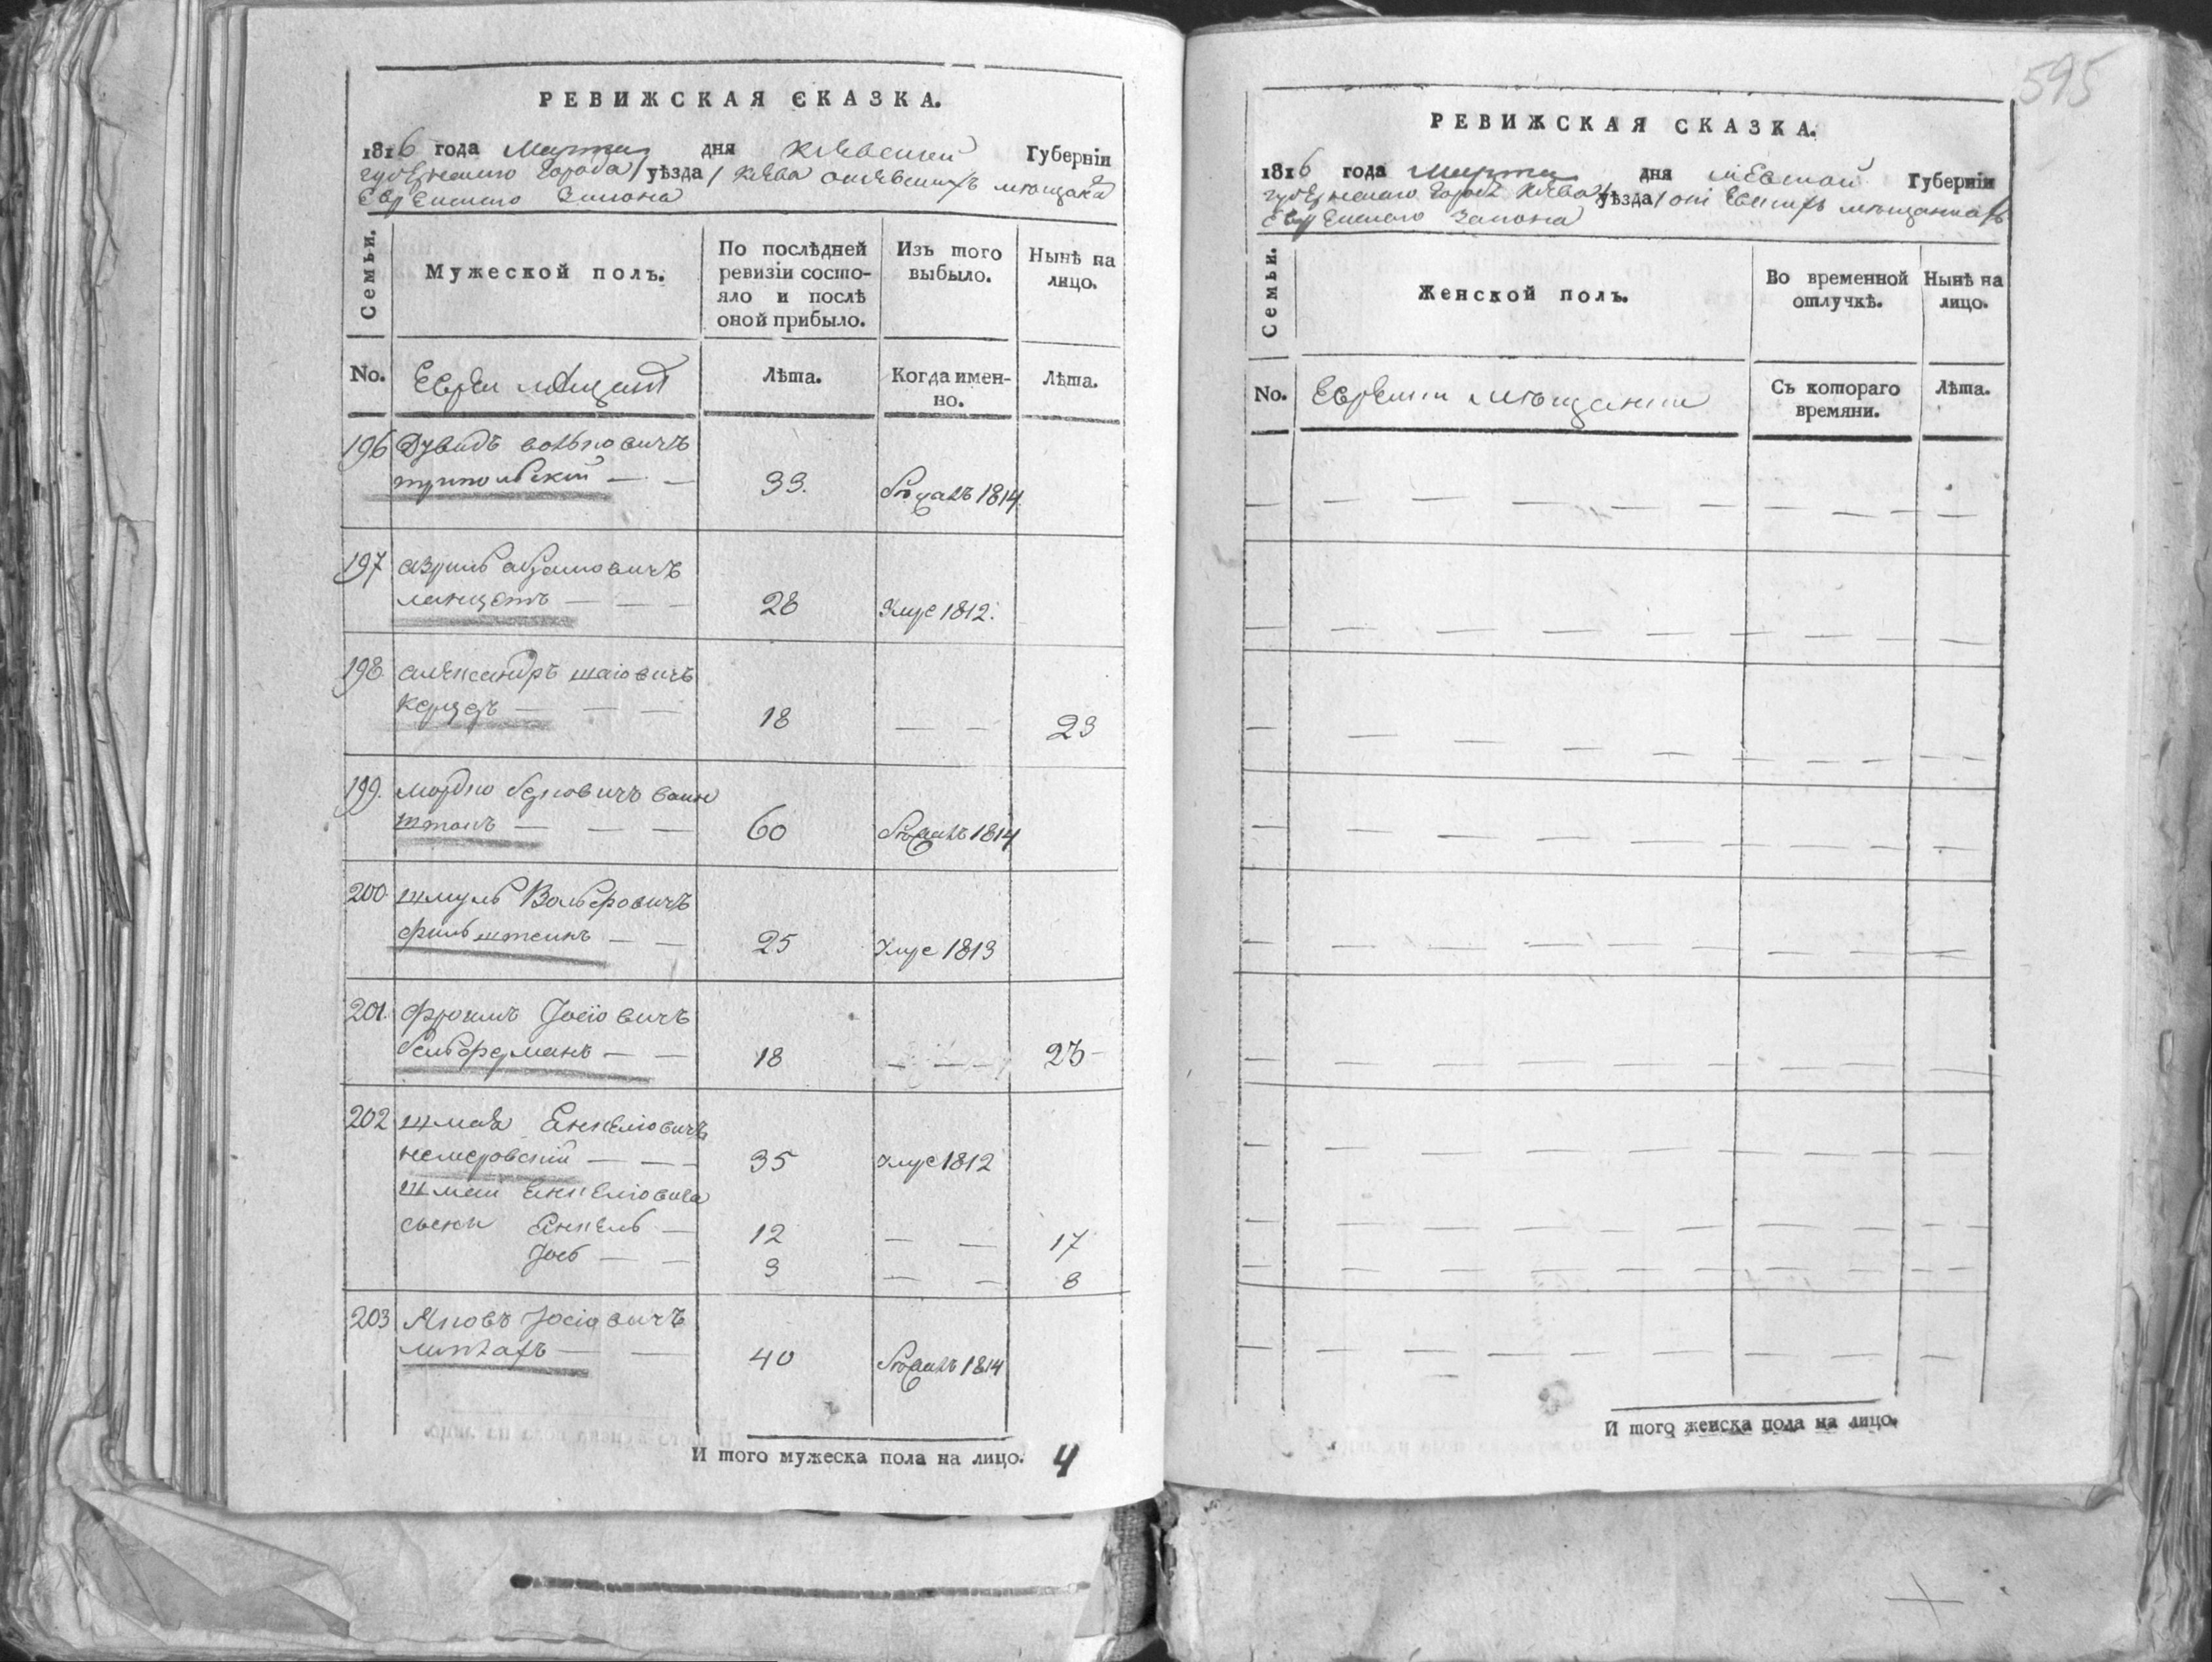 РЕВИЖСКАЯ СКАЗКА.
1816 года Марта дня Кіевской Губерніи
губернскаго города / уѣзда / Кіева о мѣщанахъ
Еврейскаго Закона
Семьи.
Мужеской полъ.
По послѣдней ревизіи состо-
яло и послѣ оной прибыло.
Изъ того выбыло.
Нынѣ на лицо.
No.
Евреи мѣщане
Лѣта.
Когда имен-
но.
Лѣта.
196 Дувидъ Волковичъ
трипольскій — — 33. 1814
197 Азриль Абрамовичъ
28 Умре 1812.
198 Александръ Шаіовичъ
18 — — 23
199. Мордко Берковичъ Ваин
штокъ — — — 60 1814
200 Шмуль Вольфовичъ
фильштеинъ — — 25 Умре 1813
201. Фроимъ Іосіовичъ
— — 18 — — 23
202 Шмая Янкеліовичъ
немеровскій — — — 35 Умре 1812
Шмаи Янкеліовича
сыны Янкель — 12 — — 17
Іось — — 3 — — 8
203 Яковъ Іосіовичъ
— — 40 1814
И того мужеска пола на лицо. 4
595
РЕВИЖСКАЯ СКАЗКА.
1816 года Марта дня Кіевской Губерніи
губернскаго города Кіева / уѣзда / мѣщанкахъ
Еврейскаго Закона
Семьи.
Женской полъ.
Во временной отлучкѣ.
Нынѣ на лицо.
No.
Еврейки мѣщанки
Съ котораго времяни.
Лѣта.
И того женска пола на лицо.